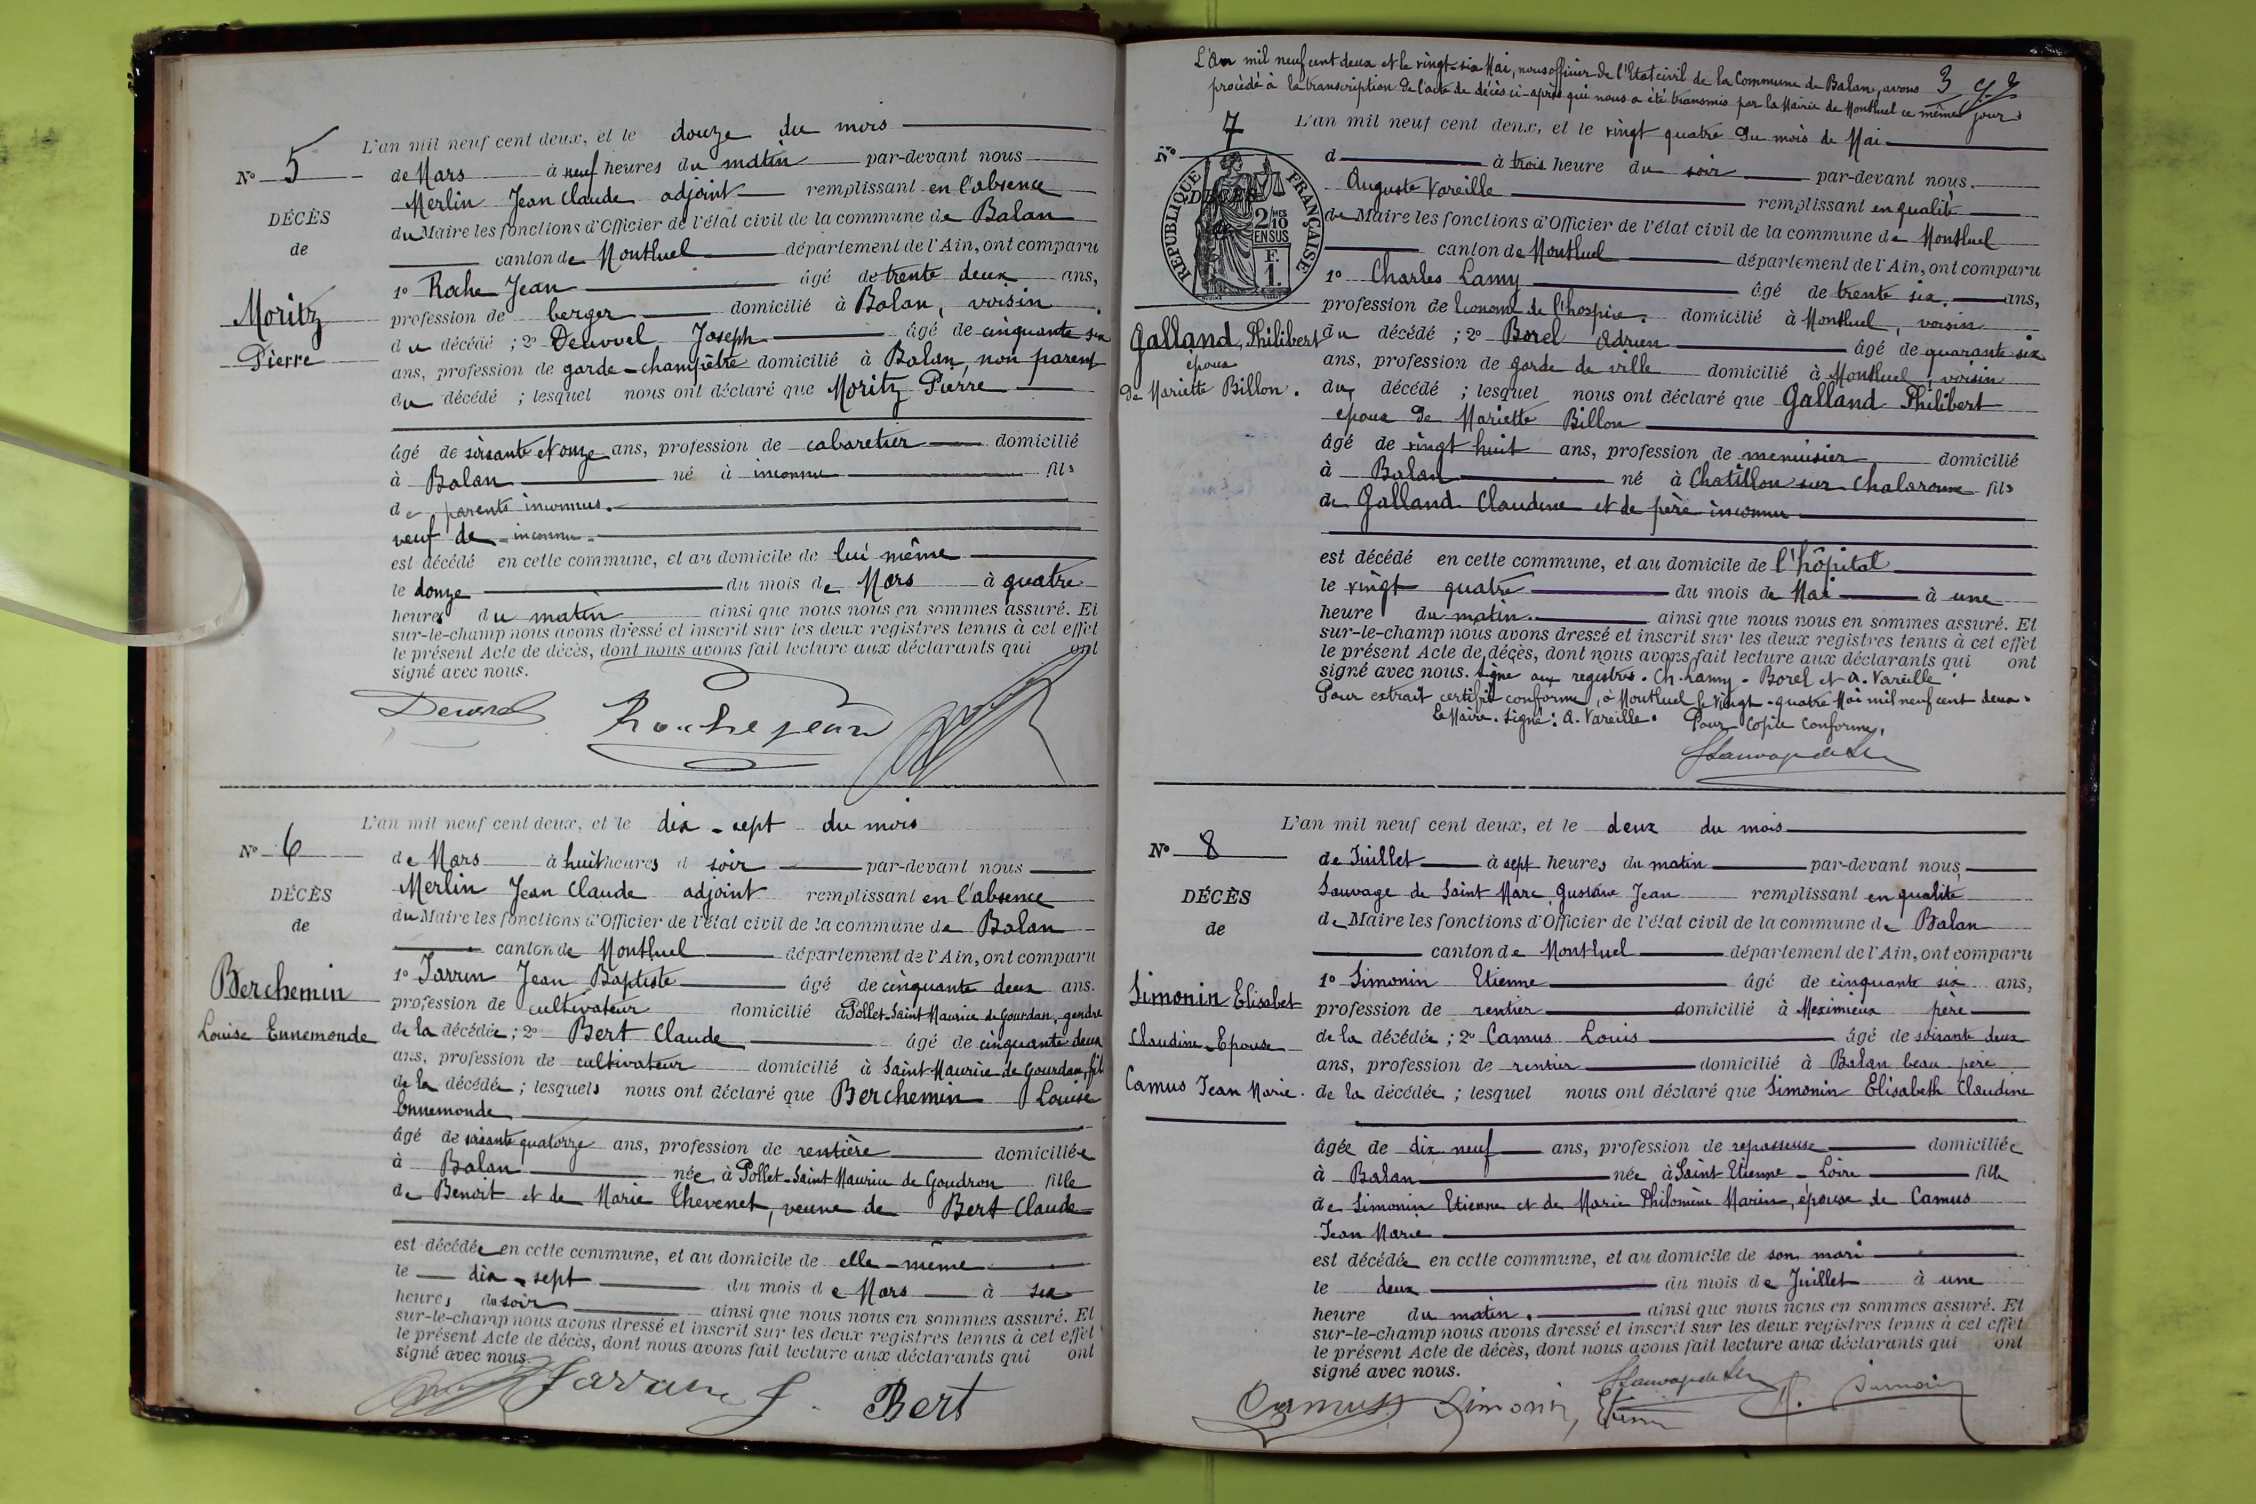 L'an mil neuf cent deux, et le douze du mois
No 5
de Mars à neuf heures du matin par-devant nous
Merlin Jean Claude adjoint remplissant en l'absence
DÉCÈS
du Maire les fonctions d'Officier de l'état civil de la commune de Balan
de
canton de Montluel département de l'Ain, ont comparu
1o Roche Jean âgé de trente deux ans,
Moritz
profession de berger domicilié à Balan, voisin
du décédé ; 2o Joseph âgé de cinquante six
Pierre
ans, profession de garde-champêtre domicilié à Balan, non parent
du décédé ; lesquel nous ont déclaré que Moritz Pierre
âgé de soixante et onze ans, profession de cabaretier domicilié
à Balan né à inconnu fils
de parents inconnus.
veuf de inconnu.
est décédé en cette commune, et au domicile de lui même
le douze du mois de Mars à quatre
heures du matin ainsi que nous nous en sommes assuré. Et
sur-le-champ nous avons dressé et inscrit sur les deux registres tenus à cet effet
le présent Acte de décès, dont nous avons fait lecture aux déclarants qui ont
signé avec nous.
Roche jean
L'an mil neuf cent deux, et le dix-sept du mois
No 6
de Mars à huit heures d soir par-devant nous
Merlin Jean Claude adjoint remplissant en l'absence
DÉCÈS
du Maire les fonctions d'Officier de l'état civil de la commune de Balan
de
canton de Montluel département de l'Ain, ont comparu
1o Jean Baptiste âgé de cinquante deux ans.
Berchemin
profession de cultivateur domicilié à Pollet-Saint Maurice de Gourdan, gendre
Louise Ennemonde
de la décédée ; 2o Bert Claude âgé de cinquante deux
ans, profession de cultivateur domicilié à Saint-Maurice de Gourdan, fils
de la décédée ; lesquels nous ont déclaré que Berchemin Louise
Ennemonde
âgé de soixante quatorze ans, profession de rentière domiciliée
à Balan née à Pollet-Saint Maurice de Goudron fille
de Benoit et de Marie Thevenet, veuve de Bert Claude
est décédée en cette commune, et au domicile de elle-même
le dix-sept du mois de Mars à six
heures du soir ainsi que nous nous en sommes assuré. Et
sur-le-champ nous avons dressé et inscrit sur les deux registres tenus à cet effet
le présent Acte de décès, dont nous avons fait lecture aux déclarants qui ont
signé avec nous.
Bert
L'an mil neuf cent deux et le vingt-six Mai, nous officier de l'Etat civil de la Commune de Balan, avons
procédé à la transcription de l'acte de décès ci-après qui nous a été transmis par la Mairie de Montluel ce même jour
3
7
L'an mil neuf cent deux, et le vingt quatre du mois de Mai
No
d à trois heure du soir par-devant nous.
RÉPUBLIQUE FRANÇAISE
DÉCÈS
2/10 EN SUS
F. 1.
Auguste Vareille remplissant en qualité
de Maire les fonctions d'Officier de l'état civil de la commune de Montluel
canton de Montluel département de l'Ain, ont comparu
1o Charles Lamy âgé de trente six. ans,
profession de Econome de l'hospice. domicilié à Montluel, voisin
Galland, Philibert
du décédé ; 2o Borel Adrien âgé de quarante six
époux
ans, profession de garde de ville domicilié à Montluel, voisin
de Mariette Billon.
du décédé ; lesquel nous ont déclaré que Galland Philibert
epoux de Mariette Billon
âgé de vingt huit ans, profession de menuisier domicilié
à Balan né à Chatillon sur Chalaronne fils
de Galland Claudine et de père inconnu
est décédé en cette commune, et au domicile de l'hôpital
le vingt quatre du mois de Mai à une
heure du matin. ainsi que nous nous en sommes assuré. Et
sur-le-champ nous avons dressé et inscrit sur les deux registres tenus à cet effet
le présent Acte de décès, dont nous avons fait lecture aux déclarants qui ont
signé avec nous. Signé aux registres. Ch. Lamy - Borel et A. Vareille
Pour extrait certifié conforme, à Montluel le vingt-quatre Mai mil neuf cent deux.
Le Maire. Signé : A. Vareille. Pour Copie Conforme,
L'an mil neuf cent deux, et le deux du mois
No 8
de Juillet à sept heures du matin par-devant nous,
Sauvage de Saint Marc Gustave Jean remplissant en qualité
DÉCÈS
de Maire les fonctions d'Officier de l'état civil de la commune de Balan
de
canton de Montluel département de l'Ain, ont comparu
1o Simonin Etienne âgé de cinquante six ans,
Simonin Elisabet
profession de rentier domicilié à Meximieux père
Claudine-Epouse
de la décédée ; 2o Camus Louis âgé de soixante deux
ans, profession de rentier domicilié à Balan beau père
Camus Jean Marie.
de la décédée ; lesquel nous ont déclaré que Simonin Elisabeth Claudine
âgée de dix neuf ans, profession de repasseuse domiciliée
à Balan née à Saint Etienne - Loire fille
de Simonin Etienne et de Marie Philomène Marin, épouse de Camus
Jean Marie
est décédée en cette commune, et au domicile de son mari
le deux du mois de Juillet à une
heure du matin. ainsi que nous nous en sommes assuré. Et
sur-le-champ nous avons dressé et inscrit sur les deux registres tenus à cet effet
le présent Acte de décès, dont nous avons fait lecture aux déclarants qui ont
signé avec nous.
Camus Simonin